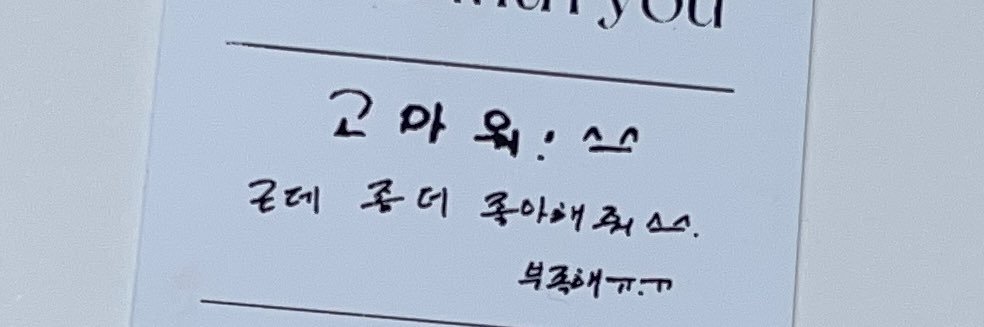 you
고마워: ^_^
근데 좀 더 좋아해줘 ^_^.
부족해 ㅠ.ㅠ